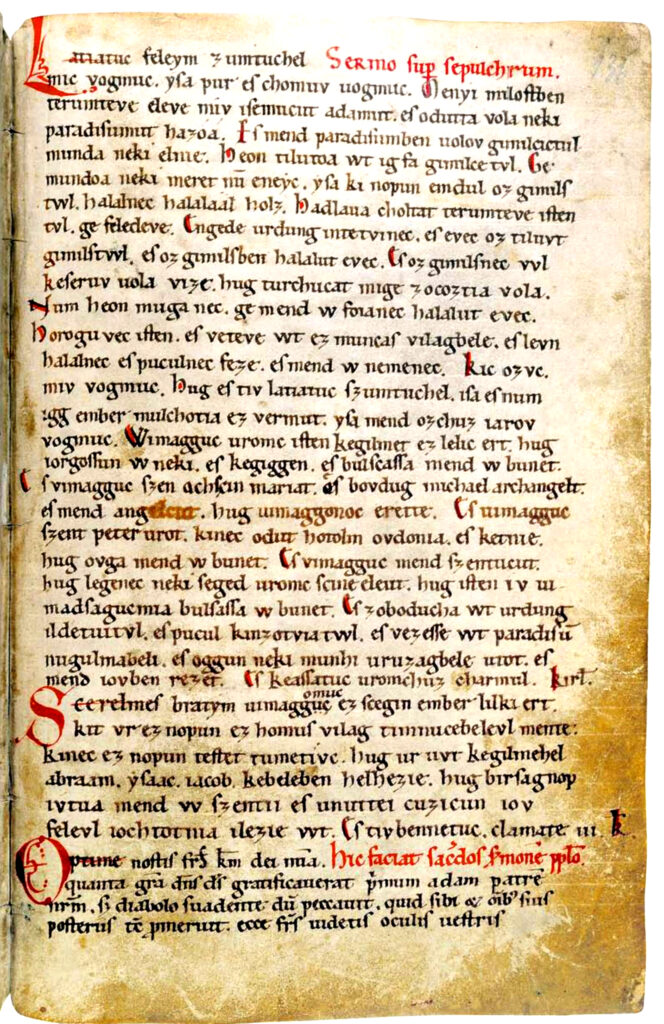 Latiatuc feleym zumtuchel Sermo sup sepulchrum.
mic vogmuc. ysa pur es chomuv uogmuc. Menyi milostben
terumteve eleve miv isemucut adamut. es odutta vola neki
paradisumut hazoa. Es mend paradisumben uolov gimilcictul
munda neki elnie. Heon tilutoa wt ig fa gimilce tvl. Ge
mundoa neki meret nū eneyc. ysa ki nopun emdul oz gimils
twl. halalnec halalaal holz. Hadlaua choltat terumteve isten
tvl. ge feledeve. Engede urdung intetvinec. es evec oz tiluvt
gimilstwl. es oz gimilsben halalut evec. Es oz gimilsnec vvl
keseruv uola vize. hug turchucat mige zocoztia vola.
Num heon muga nec. ge mend w foianec halalut evec.
Horogu vec isten. es veteve wt ez muncas vilagbele. es levn
halalnec es puculnec feze. es mend w nemenec. Kic ozvc.
miv vogmuc. Hug es tiv latiatuc szumtuchel. isa es num
igg ember mulchotia ez vermut. ysa mend ozchuz iarov
vogmuc. Wimagguc uromc isten kegilmet ez lelic ert. hug
iorgossun w neki. es kegiggen. es bulsassa mend w bunet.
Es vimagguc szen achscin mariat. es bovdug michael archangelt.
es mend angelcut. hug uimaggonoc erette. Es uimagguc
szent peter urot. kinec odut hotolm ovdonia. es ketnie.
hug ovga mend w bunet. Es vimagguc mend szentucut.
hug legenec neki seged uromc scine eleut. hug isten iv ui
madsagucmia bulsassa w bunet. Es zoboducha wt urdung
ildetuitvl. es pucul kinzotviatwl. es vezesse wt paradisū
nugulmabeli. es oggun neki munhi uruzagbele utot. es
mend iovben rezet. Es keassatuc uromchuz charmul. kirl.
Scerelmes bratym uimagg omuc ez scegin ember lilki ert.
kit vr ez nopun ez homus vilag timnucebelevl mente.
kinec ez nopun testet tumetivc. hug ur uvt kegilmehel
abraam. ysaac. iacob. kebeleben helhezie. hug birsagnop
ivtua mend w szentii es unuttei cuzicun iov
felevl iochtotnia ilezie wt. Es tivbennetuc. clamate iii. K.
Optime nostis frs km dei mia. Hic faciat sacdos smone pplo.
quanta gra dns ds gratificaverat pmum adam patrē
nrm. si diabolo suadente dū peccavit. quid sibi et omib suis
posteris pmeruit. ecce frs videtis oculis vestris